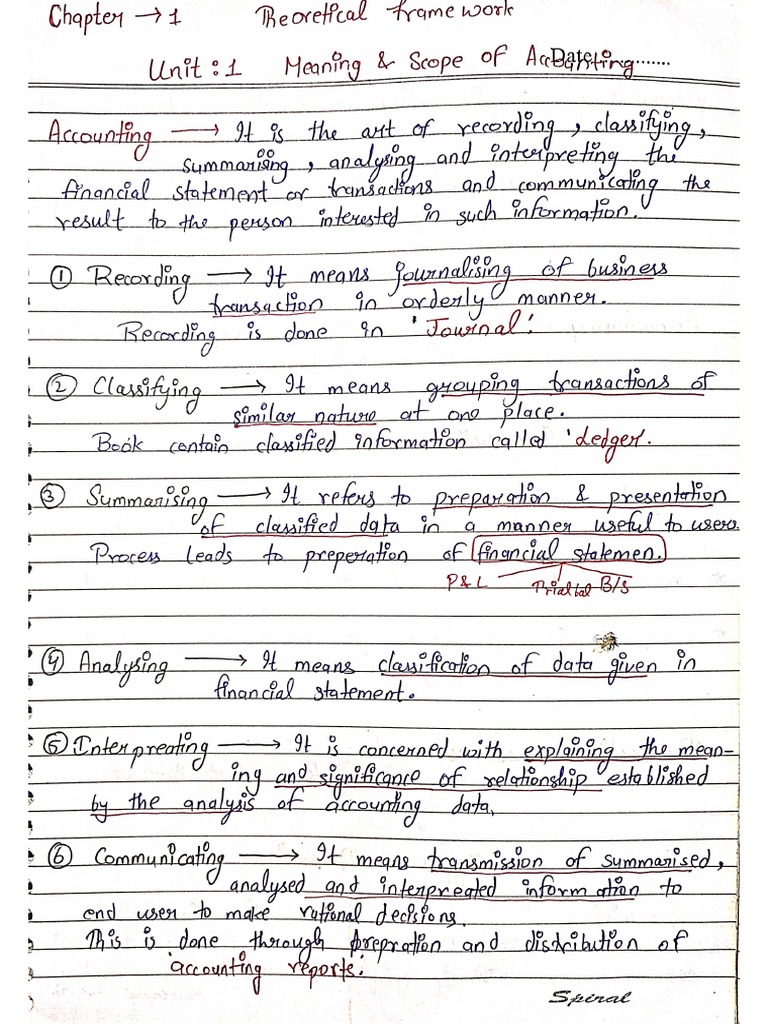 Chapter → 1 Theoretical framework
Unit : 1 Meaning & Scope of Accounting
Date...........
Accounting → It is the art of recording, classifying,
summarising, analysing and interpreting the
financial statement or transactions and communicating the
result to the person interested in such information.
① Recording → It means journalising of business
transaction in orderly manner.
Recording is done in 'Journal'.
② Classifying → It means grouping transactions of
similar nature at one place.
Book contain classified information called 'Ledger'.
③ Summarising → It refers to preparation & presentation
of classified data in a manner useful to users.
Process leads to preperation of financial statemen.
P&L Trial bal B/S
④ Analysing → It means classification of data given in
financial statement.
⑤ Interpreating → It is concerned with explaining the mean-
ing and significance of relationship established
by the analysis of accounting data.
⑥ Communicating → It means transmission of summarised,
analysed and interpreated information to
end user to make rational decisions.
This is done through prepration and distribution of
'accounting reports'.
Spiral